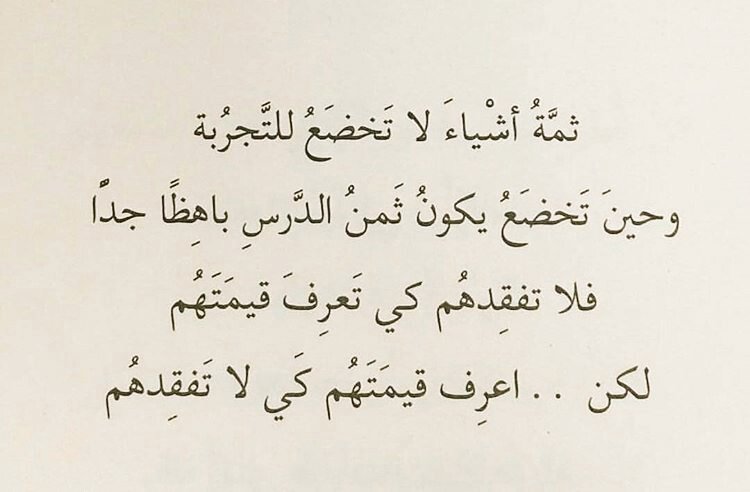 ثمَّةُ أشْياءَ لا تَخضَعُ للتَّجرُبة
وحينَ تَخضَعُ يكونُ ثَمنُ الدَّرسِ باهِظًا جدًّا
فلا تفقِدهُم كي تَعرِفَ قيمَتَهُم
لكن .. اعرِف قيمَتَهُم كَي لا تَفقِدهُم